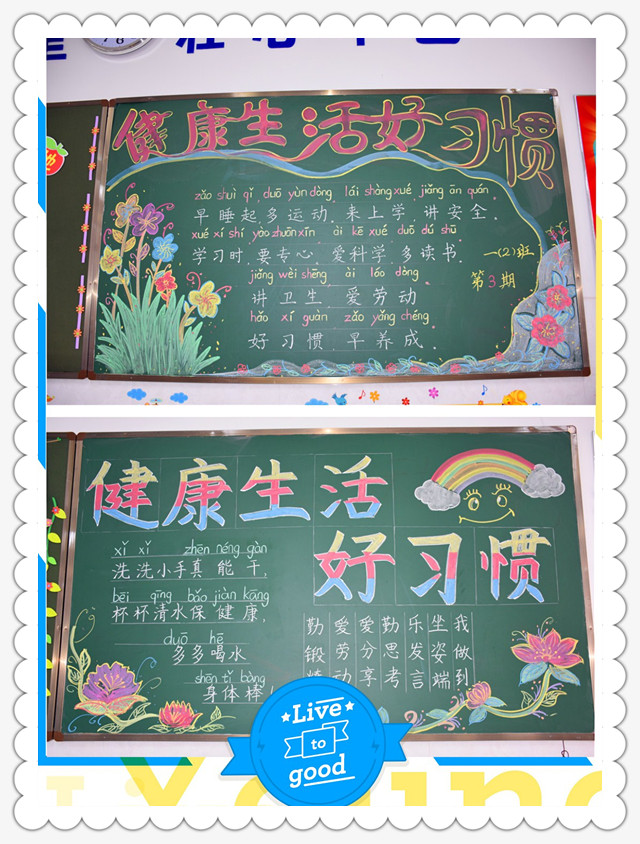 健康生活好习惯
zǎo shuì qǐ, duō yùn dòng, lái shàng xué, jiǎng ān quán.
早睡起,多运动,来上学,讲安全。
xué xí shí yào zhuān xīn ài kē xué duō dú shū
学习时,要专心,爱科学,多读书。
jiǎng wèi shēng ài láo dòng
讲卫生,爱劳动
hǎo xí guàn zǎo yǎng chéng
好习惯,早养成。
一(2)班
第3期
健康生活
好习惯
xǐ xǐ zhēn néng gàn
洗洗小手真能干,
bēi qīng bǎo jiàn kāng
杯杯清水保健康,
duō hē
多多喝水
shēn tǐ bàng
身体棒!
我做到
坐姿端
乐发言
勤思考
爱分享
爱劳动
勤锻
Live
to
good